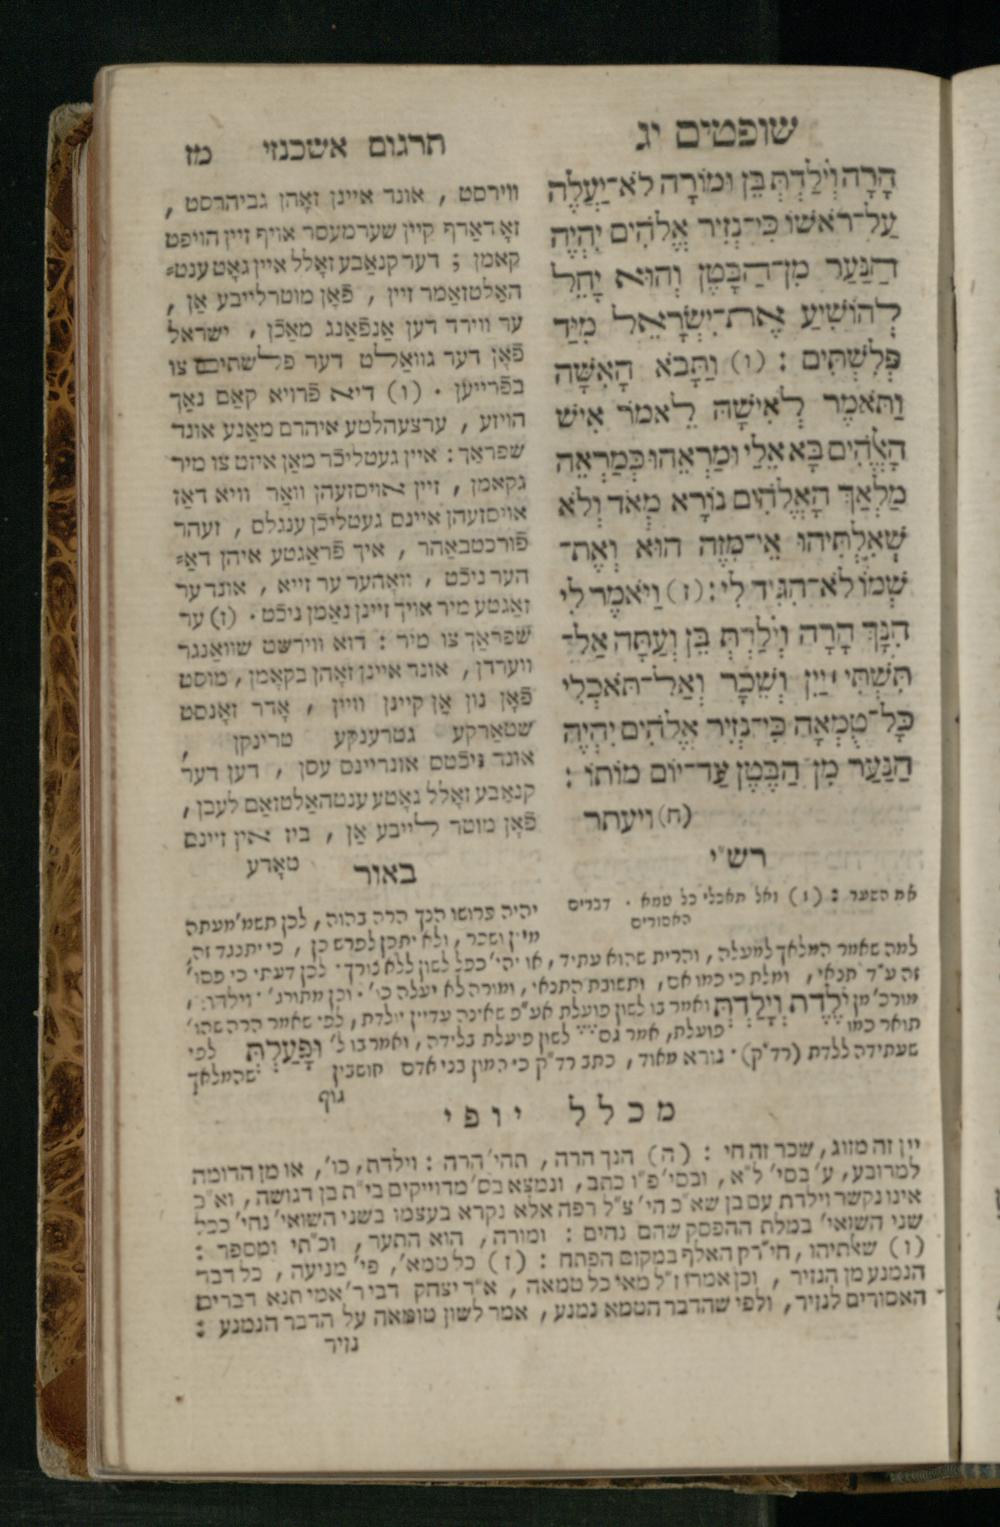 שופטים יג
תרגום אשכנזי
מז
הָרָה וְיֹלַדְתְּ בֵּן וּמוֹרָה לֹא־יַעֲלֶה
עַל־רֹאשׁוֹ כִּי־נְזִיר אֱלֹהִים יִהְיֶה
הַנַּעַר מִן־הַבָּטֶן וְהוּא יָחֵל
לְהוֹשִׁיעַ אֶת־יִשְׂרָאֵל מִיַּד
פְּלִשְׁתִּים : (ו) וַתָּבֹא הָאִשָּׁה
וַתֹּאמֶר לְאִישָׁהּ לֵאמֹר אִישׁ
הָאֱלֹהִים בָּא אֵלַי וּמַרְאֵהוּ כְּמַרְאֵה
מַלְאַךְ הָאֱלֹהִים נוֹרָא מְאֹד וְלֹא
שְׁאִלְתִּיהוּ אֵי־מִזֶּה הוּא וְאֶת־
שְׁמוֹ לֹא־הִגִּיד לִי : (ז) וַיֹּאמֶר לִי
הִנָּךְ הָרָה וְיֹלַדְתְּ בֵּן וְעַתָּה אַל־
תִּשְׁתִּי יַיִן וְשֵׁכָר וְאַל־תֹּאכְלִי
כָּל־טֻמְאָה כִּי־נְזִיר אֱלֹהִים יִהְיֶה
הַנַּעַר מִן הַבֶּטֶן עַד־יוֹם מוֹתוֹ :
(ח) ויעתר
ווירסט , אונד איינן זאָהן גביהרסט ,
זאָ דאַרף קיין שערמעסר אויף זיין הויפט
קאמן ; דער קנאַבע זאָלל איין גאָט ענט=
האַלטזאַמר זיין , פֿאָן מוטרלייבע אַן ,
ער ווירד דען אַנפֿאַנג מאַכֿן , ישראל
פֿאָן דער גוואַלט דער פלשתים צו
בפֿרייען . (ו) דיא פֿרויא קאַם נאַך
הויזע , ערצעהלטע איהרם מאַנע אונד
שפראַך : איין געטליכֿר מאַן איזט צו מיר
גקאמן , זיין אויסזעהן וואַר וויא דאַז
אויסזעהן איינם געטליכֿן ענגלס , זעהר
פֿורכטבאַהר , איך פֿראַגטע איהן דאַ=
הער ניכֿט , וואָהער ער זייא , אונד ער
זאַגטע מיר אויך זיינן נאַמן ניכֿט . (ז) ער
שפראַך צו מיר : דוא ווירסט שוואַנגר
ווערדן , אונד איינן זאָהן בקאָמן , מוסט
פֿאָן נון אַן קיינן וויין , אָדר זאָנסט
שטאַרקע גטרענקע טרינקן ,
אונד ניכֿטס אונריינס עסן , דען דער
קנאַבע זאָלל גאָטע ענטהאַלטזאַם לעבן ,
פֿאָן מוטר לייבע אַן , ביז אין זיינם
טאָדע
רש״י
את השער : (ז) ואל תאכלי כל טמא . דברים
האסורים
באור
יהיה פרושו הנך הרה בהוה , לכן תשמ׳ מעתה
מיין ושכר , ולא יתכן לפרש כן , כי יתנגד זה
למה שאמר המלאך למעלה , והרית שהוא עתיד , או יהי׳ כפל לשון ללא צורך . לכן דעתי כי פסו׳
זה ע״ד תנאי , ומלת כי כמו אם , ותשובת התנאי , ומורה לא יעלה כו׳ . וכן מתורג׳ . וילדת ,
מורכ׳ מן יֹלֶדֶת וְיָלַדְתְּ ואמר בו לשון פועלת אע״פ שאינה עדיין יולדת , לפי שאמר הרה שהו׳
תואר כמו פועלת , אמר גם לשון פועלת בלידה , ואמר בו ל׳ וּפָעַלְתְּ לפי
שעתידה ללדת (רד״ק) . נורא מאוד , כתב רד״ק כי המון בני אדם חושבין שהמלאך
גוף
מכלל יופי
יין זה מזוג , שכר זה חי : (ה) הנך הרה , תהי׳ הרה : וילדת , כו׳ , או מן הדומה
למרובע , ע׳ בסי׳ ל״א , ובסי׳ פ״ו כתב , ונמצא בס׳ מדוייקים בי״ת בן דגושה , וא״כ
אינו נקשר וילדת עם בן שא״כ הי׳ צ״ל רפה אלא נקרא בעצמו בשני השואי׳ נחי׳ ככל
שני השואי׳ במלת ההפסק שהם נחים : ומורה , הוא התער , וכ״תי ומספר :
(ו) שאלתיהו , חי״רק האלף במקום הפתח : (ז) כל טמא׳ , פי׳ מניעה , כל דבר
הנמנע מן הנזיר , וכן אמרו ז״ל מאי כל טמאה , א״ר יצחק דבי ר׳ אמי תנא דברים
האסורים לנזיר , ולפי שהדבר הטמא נמנע , אמר לשון טומאה על הדבר הנמנע :
נזיר